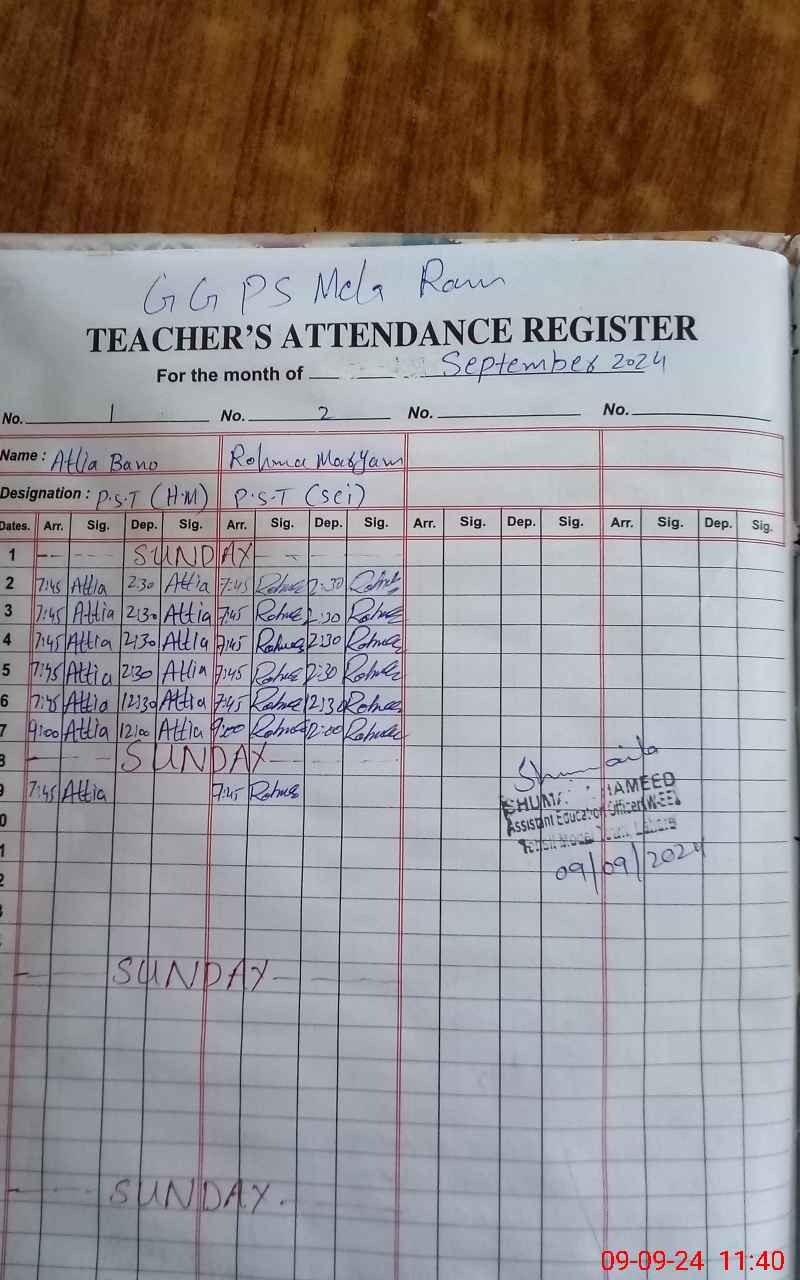 GGPS Mela Ram
TEACHER'S ATTENDANCE REGISTER
For the month of September 2024
No. 1 No. 2 No. No.
Name : Attia Bano Rohma Maryam
Designation : P.S.T (H.M) P.S.T (Sci)
Dates. Arr. Sig. Dep. Sig. Arr. Sig. Dep. Sig. Arr. Sig. Dep. Sig. Arr. Sig. Dep. Sig.
1 SUNDAY
2 7:45 Attia 2:30 Attia 7:45 Rohma 2:30 Rohma
3 7:45 Attia 2:30 Attia 7:45 Rohma 2:30 Rohma
4 7:45 Attia 2:30 Attia 7:45 Rohma 2:30 Rohma
5 7:45 Attia 2:30 Attia 7:45 Rohma 2:30 Rohma
6 7:45 Attia 12:30 Attia 7:45 Rohma 12:30 Rohma
7 9:00 Attia 12:00 Attia 9:00 Rohma 12:00 Rohma
8 SUNDAY
9 7:45 Attia 7:45 Rohma
0
1
2
Shumaila
HAMEED
Assistant Education Officer (W-EE)
Model Town, Lahore
09/09/2024
SUNDAY
SUNDAY.
09-09-24 11:40